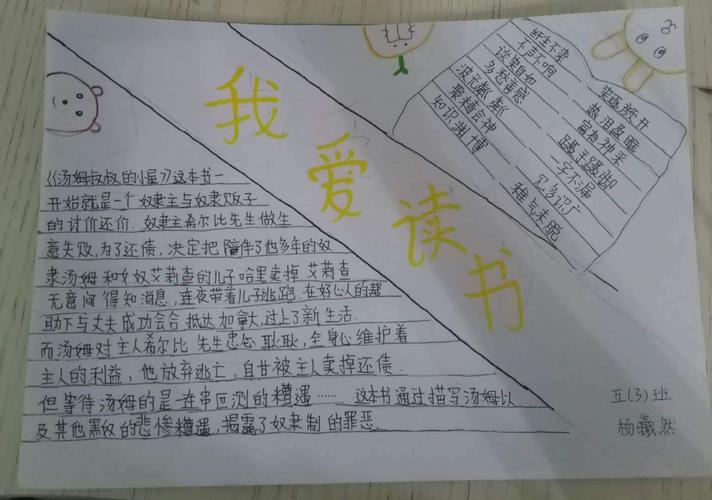 我爱读书
《汤姆叔叔的小屋》这本书一
开始就是一个奴隶主与奴隶贩子
的讨价还价.奴隶主希尔比先生做生
意失败,为了还债,决定把陪伴了他多年的奴
隶汤姆和女奴艾莉查的儿子哈里卖掉.艾莉查
无意间得知消息,连夜带着儿子逃跑.在好心人的帮
助下与丈夫成功会合抵达加拿大,过上了新生活.
而汤姆对主人希尔比先生忠心耿耿,全身心维护着
主人的利益,他放弃逃亡,自甘被主人卖掉还债.
但等待汤姆的是一连串回测的糟遇……这本书通过描写汤姆以
及其他黑奴的悲惨糟遇,揭露了奴隶制的罪恶.
纤尘不染
不声不响
谈笑自如
多愁善感
波光粼粼
聚精会神
知识渊博
热泪盈眶
蹑手蹑脚
一字不漏
见多识广
稚气未脱
五(3)班
杨羲然